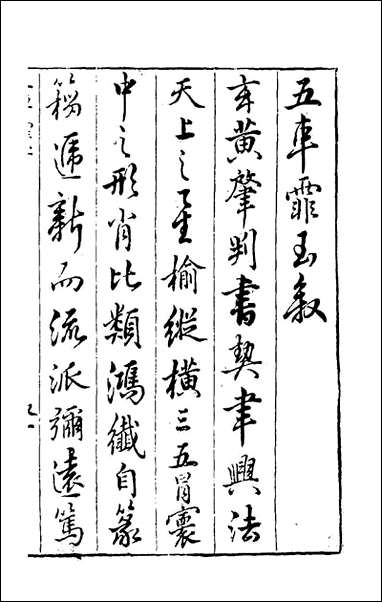 五車霏玉敘
玄黃肇判書契聿興法
天上之星榆縱橫三五罥寰
中之形肖比類鴻纖自篆
籀遞新而流派彌遠篤